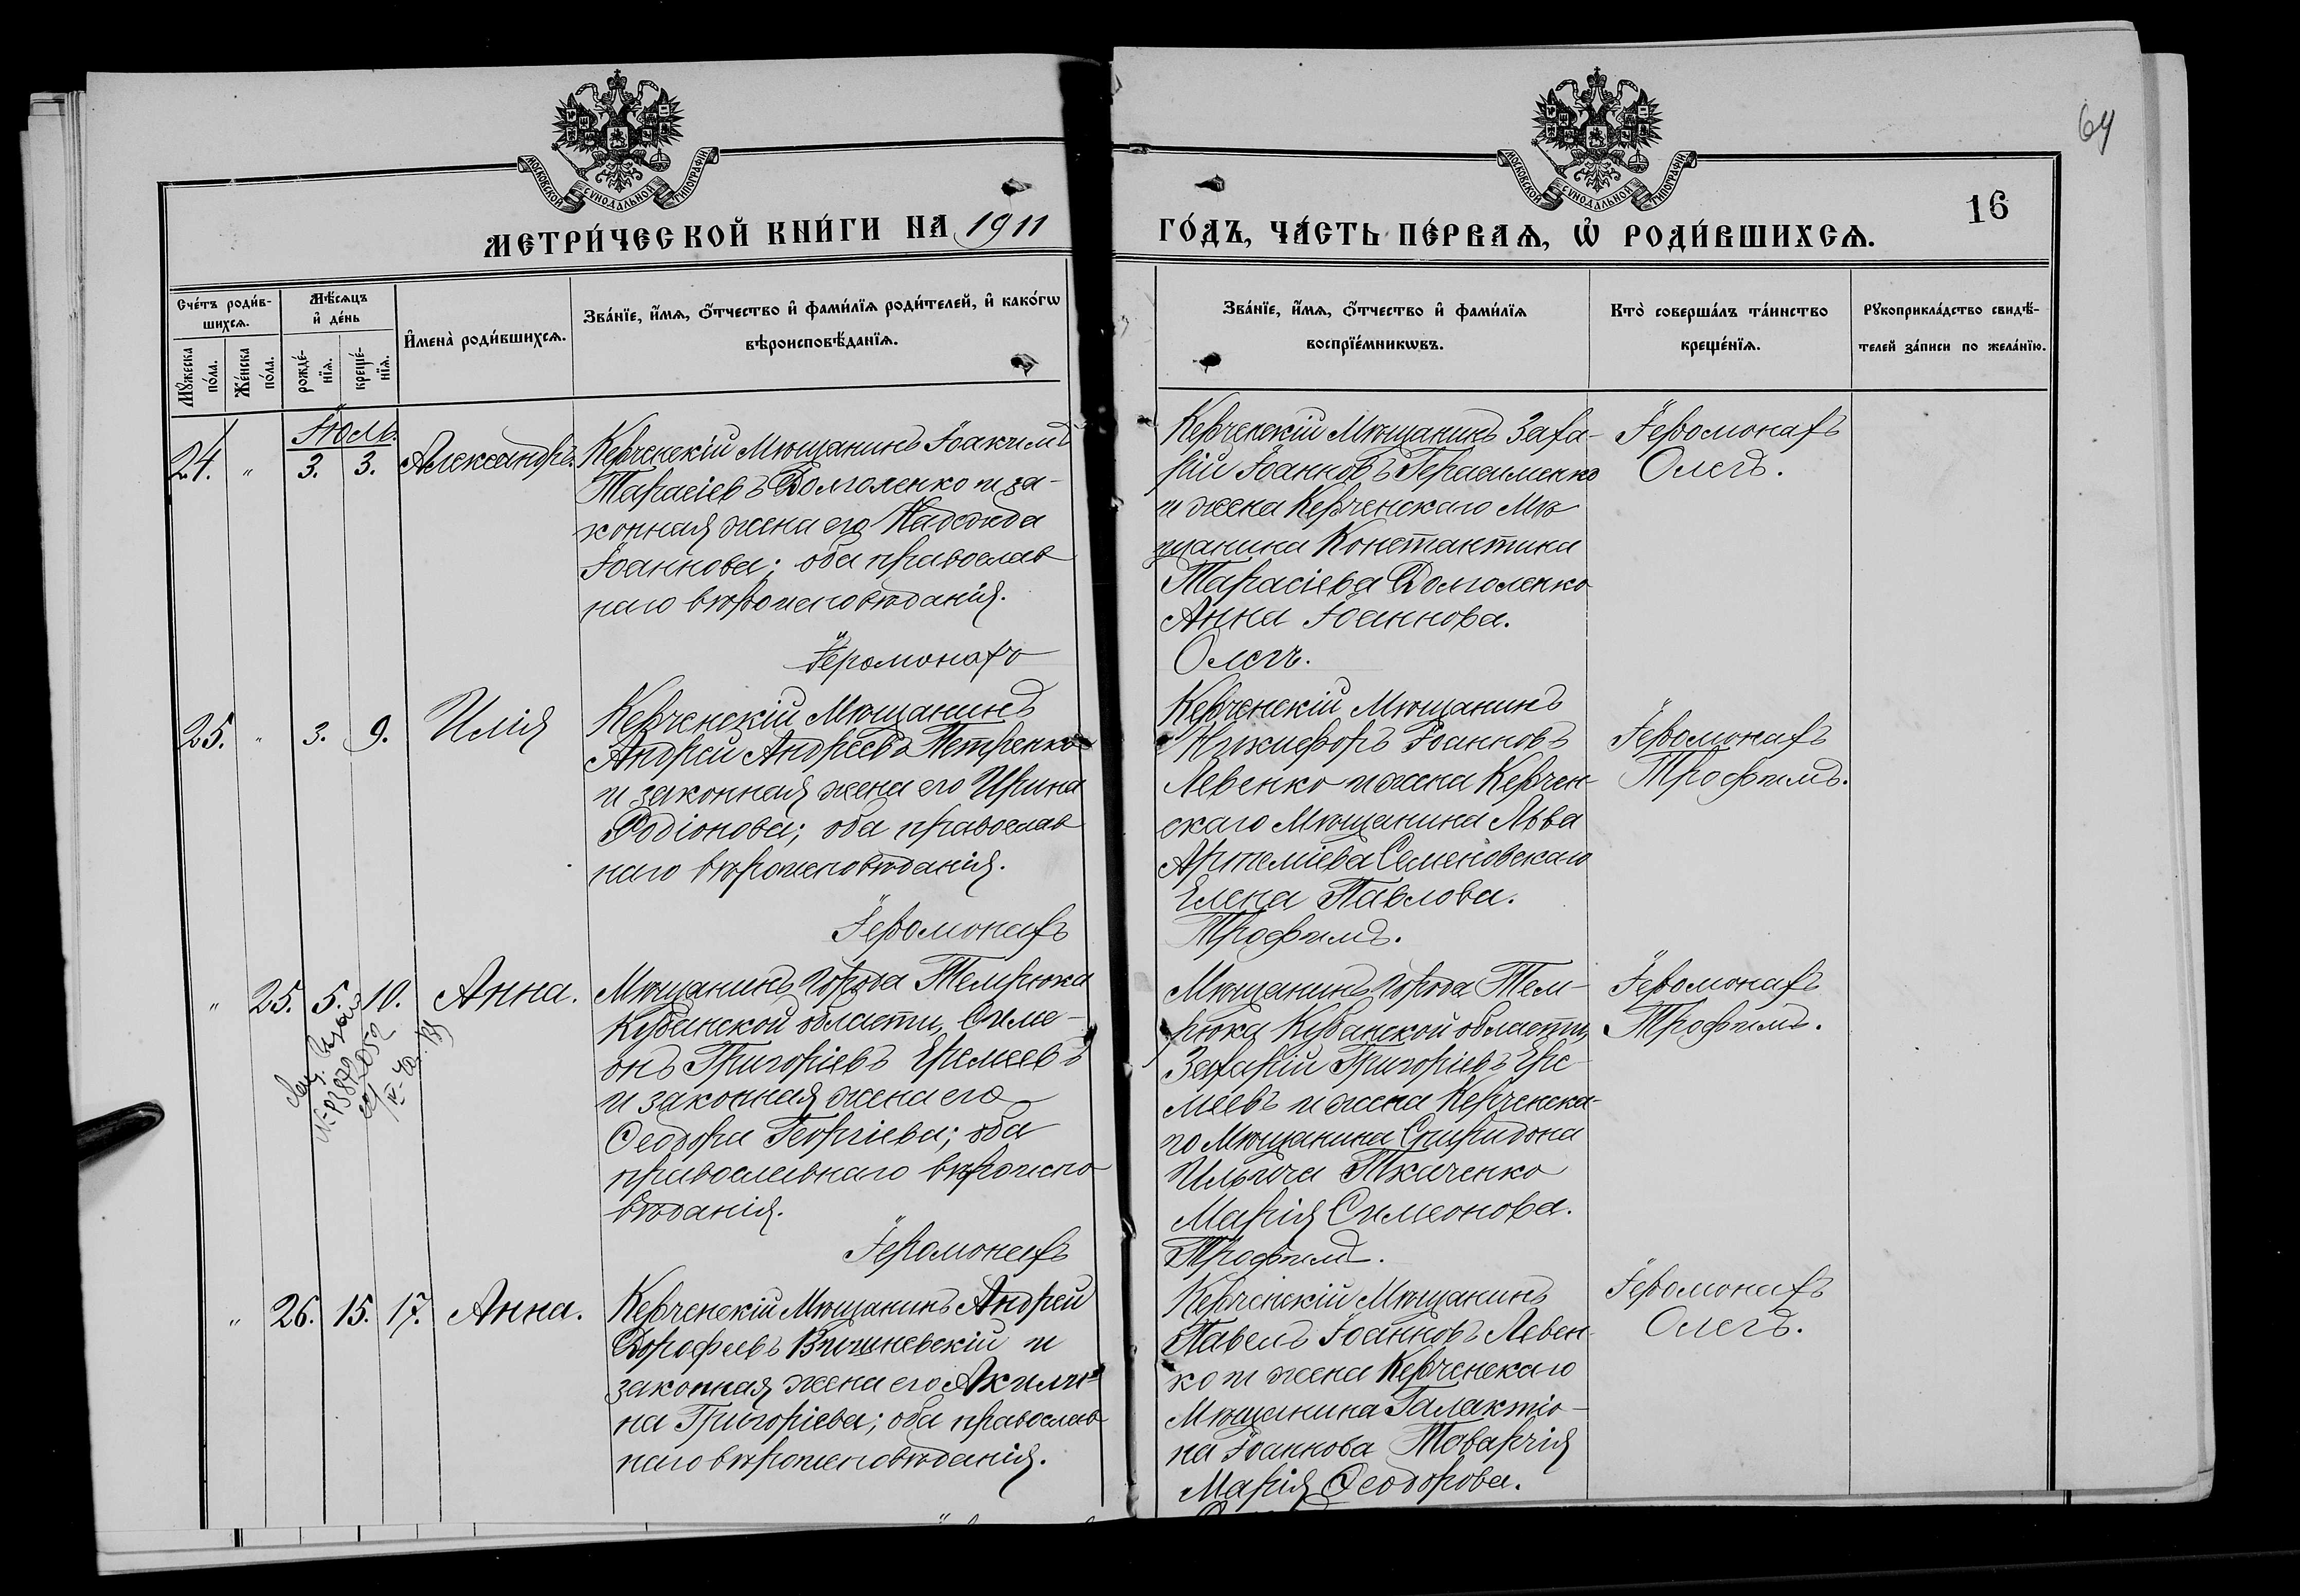 64
16
МОСКОВСКОЙ СѴНОДАЛЬНОЙ ТИПОГРАФІИ
МОСКОВСКОЙ СѴНОДАЛЬНОЙ ТИПОГРАФІИ
МЕТРИ́ЧЕСКОЙ КНИ́ГИ НА 1911
ГО́ДЪ, ЧА́СТЬ ПЕ́РВАѦ, Ѡ҆ РОДИ́ВШИХСѦ.
Сче́тъ роди́в-
шихсѧ.
Мѣ́сѧцъ
и҆ де́нь
Мꙋ́жеска
по́ла.
Же́нска
по́ла.
рожде́-
нїѧ.
креще́-
нїѧ.
И҆мена̀ роди́вшихсѧ.
Зва́нїе, и҆́мѧ, ѻ҆́тчество и҆ фами́лїѧ роди́телей, и҆ како́гѡ
вѣроисповѣ́данїѧ.
Зва́нїе, и҆́мѧ, ѻ҆́тчество и҆ фами́лїѧ
воспрїе́мникѡвъ.
Кто̀ соверша́лъ та́инство
креще́нїѧ.
Рꙋкоприкла́дство свидѣ́-
телей за́писи по жела́нїю.
Іюль.
24. " 3. 3. Александръ.
Керченскій Мѣщанинъ Іоакимъ
Тарасіевъ Долголенко и за-
конная жена его Надежда
Іоаннова; оба православ
наго вѣроисповѣданія.
Іеромонахъ
Керченскій Мѣщанинъ Заха-
рій Іоанновъ Герасименко
и жена Керченскаго Мѣ
щанина Константина
Тарасіева Долголенко
Анна Іоаннова.
Олегъ.
Іеромонахъ
Олегъ.
25. " 3. 9. Илія
Керченскій Мѣщанинъ
Андрей Андреевъ Петренко
и законная жена его Ирина
Родіонова; оба православ
наго вѣроисповѣданія.
Іеромонахъ
Керченскій Мѣщанинъ
Никифоръ Іоанновъ
Левенко и жена Керчен-
скаго Мѣщанина Льва
Артеміева Семеновскаго
Елена Павлова.
Трофимъ.
Іеромонахъ
Трофимъ.
" 25. 5. 10. Анна.
Мѣщанинъ города Темрюка
Кубанской области, Симе-
онъ Григоріевъ Еремеевъ
и законная жена его
Ѳеодора Георгіева; оба
православнаго вѣроиспо
вѣданія.
Іеромонахъ
Мѣщанинъ города Тем-
рюка Кубанской области,
Захарій Григоріевъ Ере-
меевъ и жена Керченска-
го Мѣщанина Спиридона
Ильича Ткаченко
Марія Симеонова.
Трофимъ.
Іеромонахъ
Трофимъ.
" 26. 15. 17. Анна.
Керченскій Мѣщанинъ Андрей
Дорофеевъ Вишневскій и
законная жена его Акили-
на Григоріева; оба православ
наго вѣроисповѣданія.
Керченскій Мѣщанинъ
Павелъ Іоанновъ Левен-
ко и жена Керченскаго
Мѣщанина Галактіо-
на Іоаннова Товарчія
Марія Ѳеодорова.
Іеромонахъ
Олегъ.